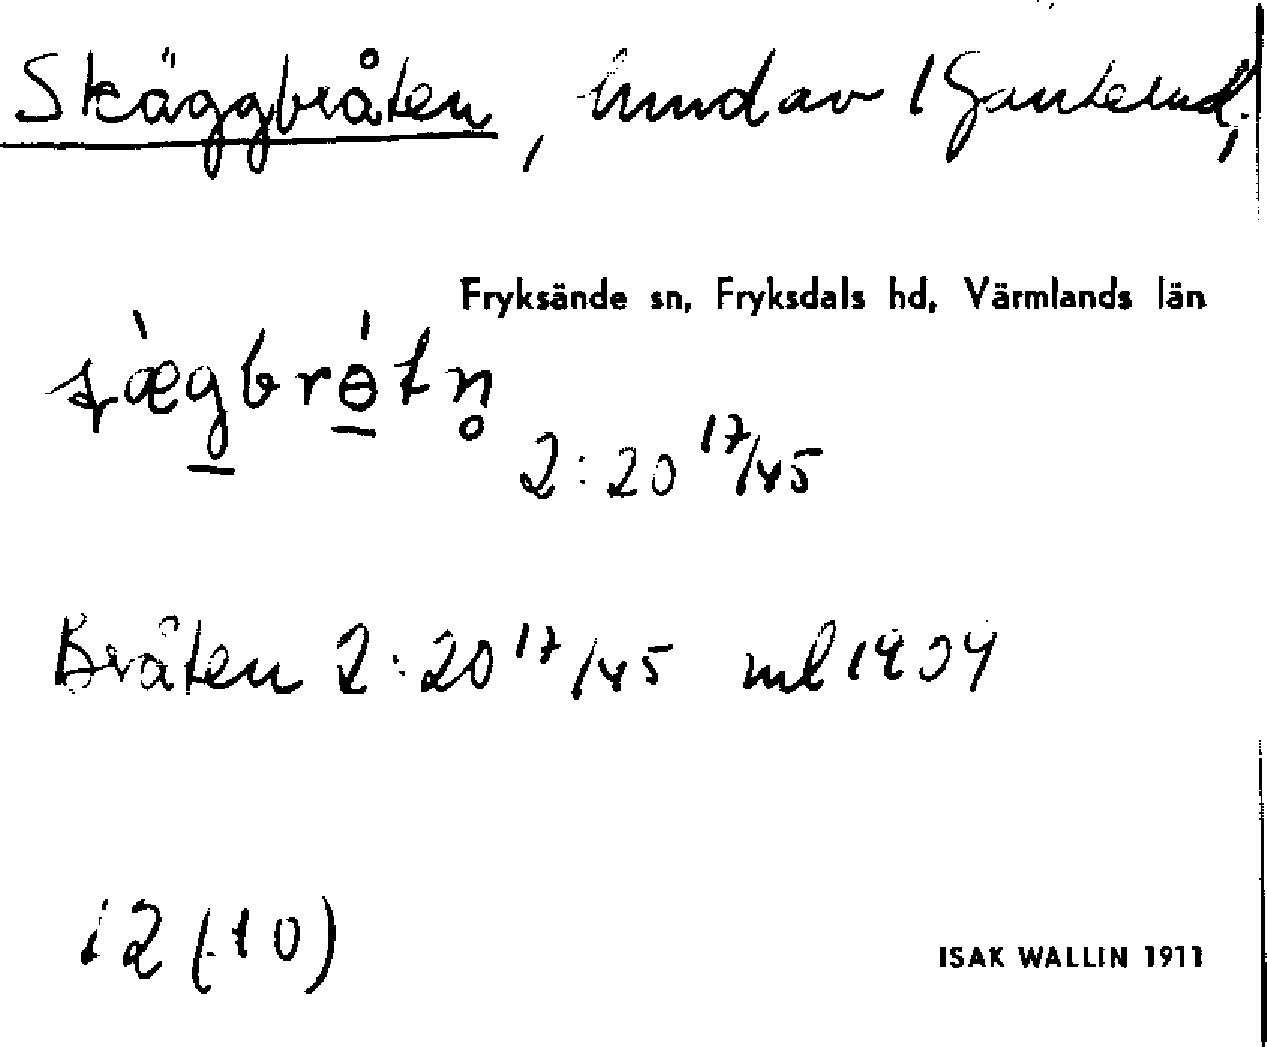 Skäggbråten, hmnd av 1 Gunkerud;
Fryksände sn, Fryksdals hd, Värmlands län
2:20 17/45
Bråten 2:20 17/45 ml 1904
i2 (10)
ISAK WALLIN 1911